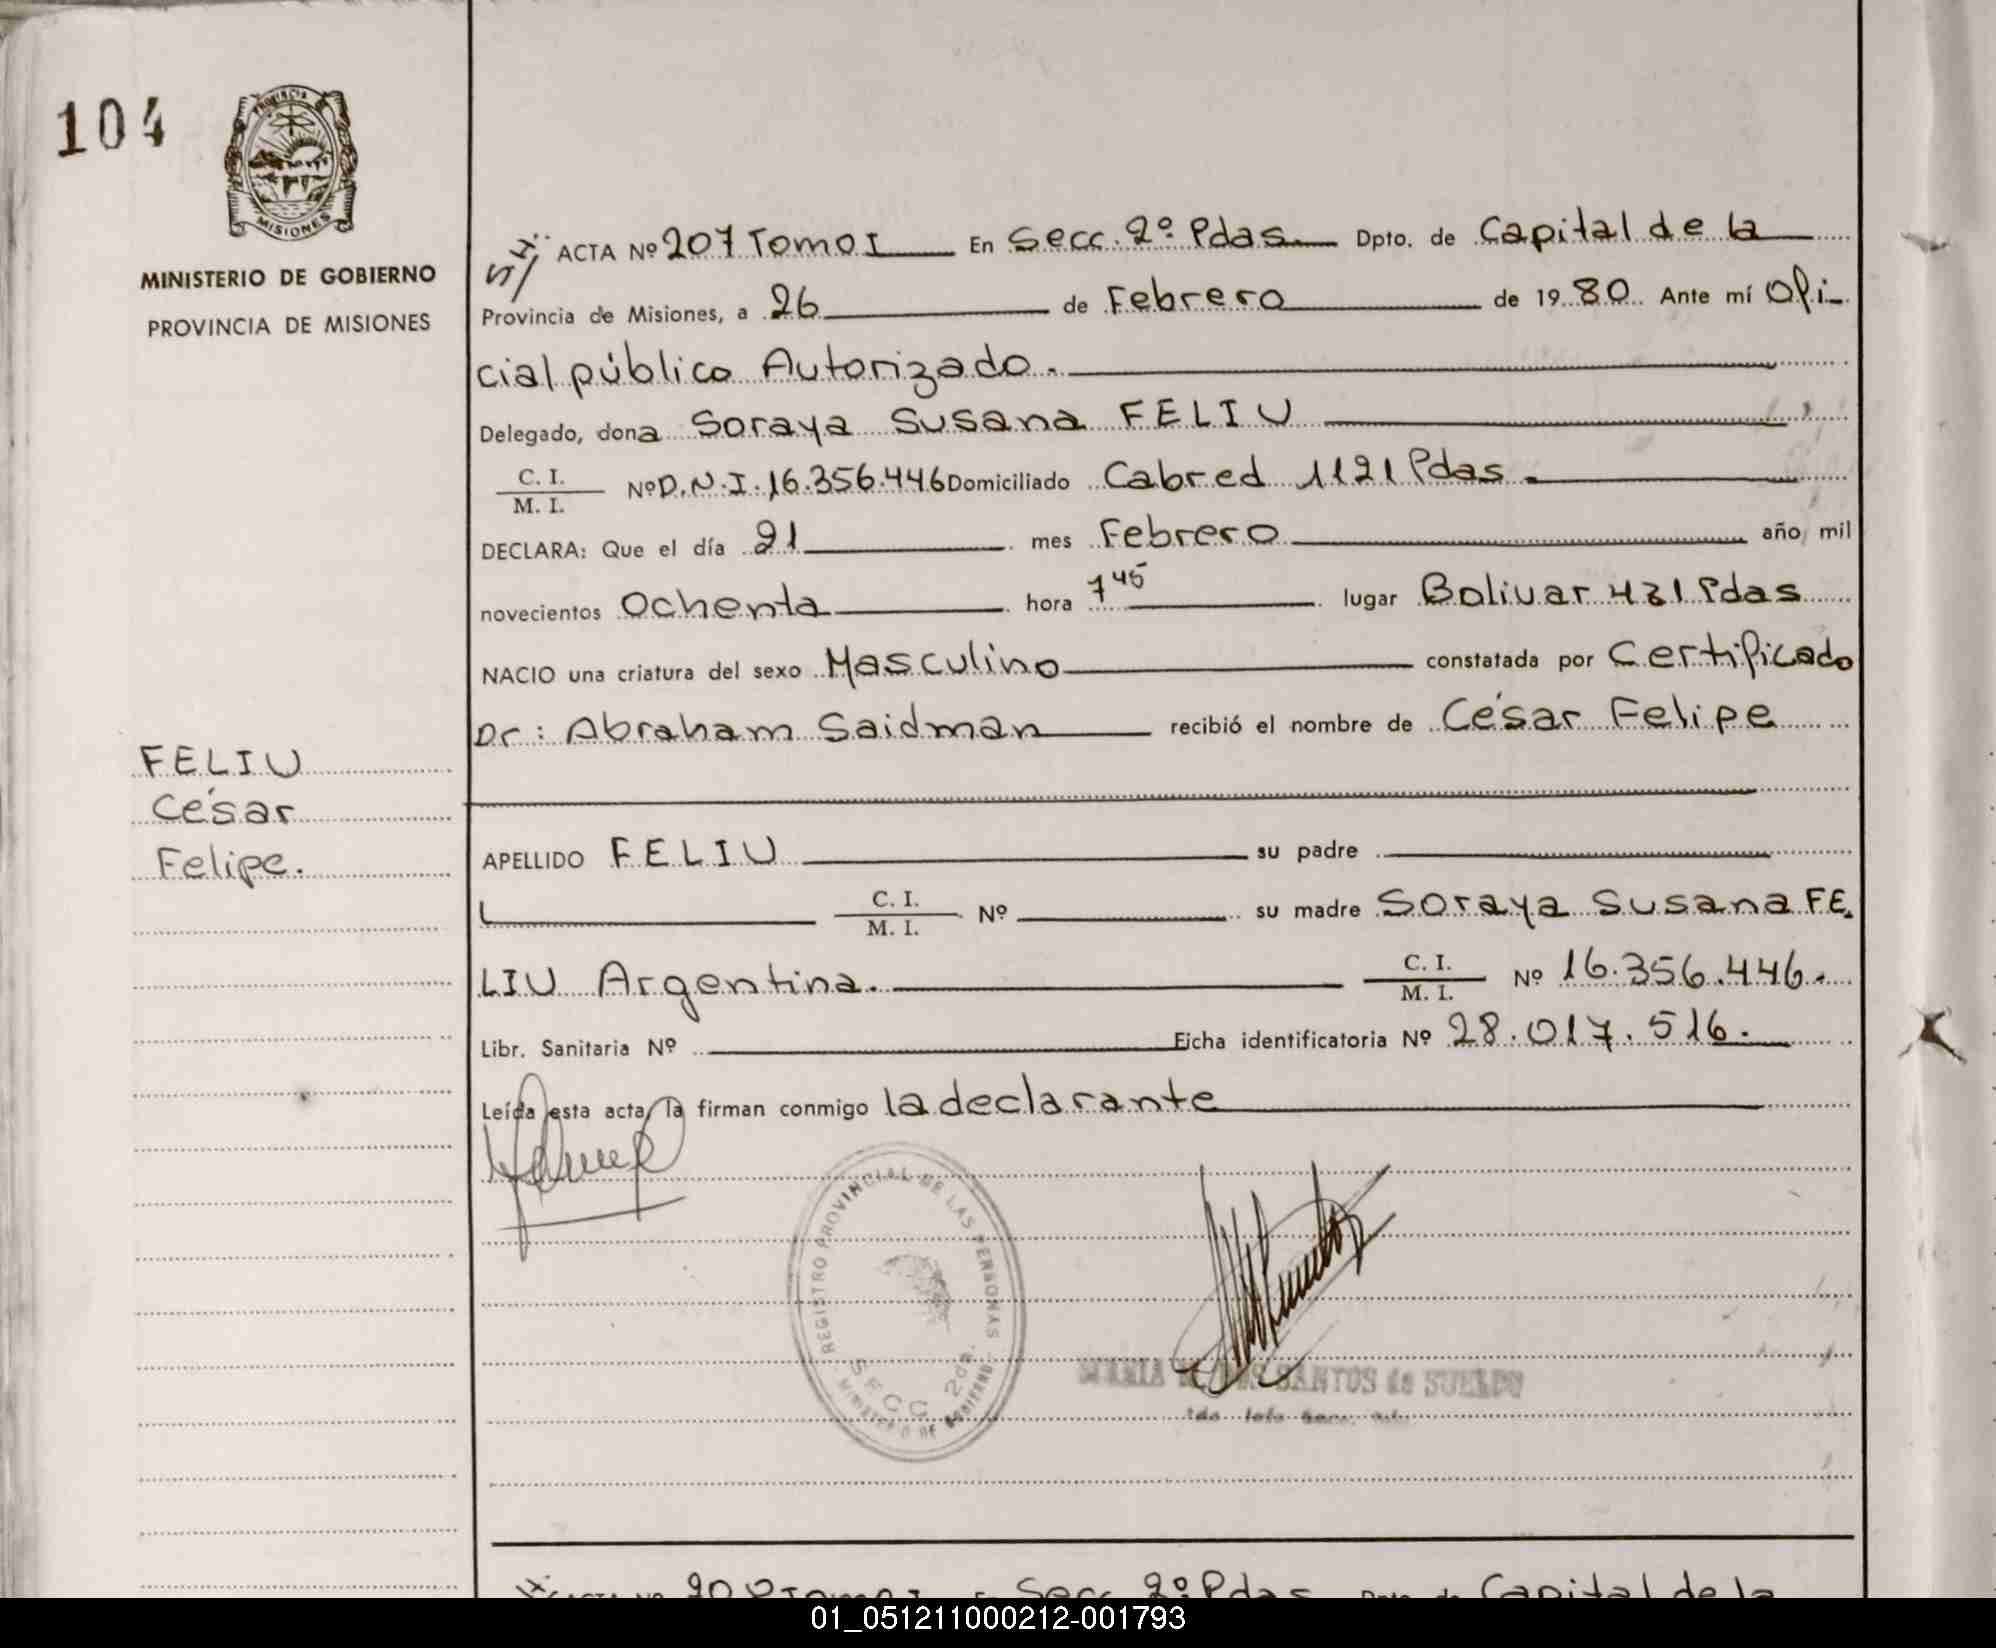 104
PROVINCIA
MISIONES
MINISTERIO DE GOBIERNO
PROVINCIA DE MISIONES
FELIU
César
Felipe.
ACTA Nº 207 Tomo I En Secc. 2º Pdas. Dpto. de Capital de la
Provincia de Misiones, a 26 de Febrero de 19 80 Ante mí Ofi-
cial público Autorizado.
Delegado, dona Soraya Susana FELIU
C. I.
M. I. Nº D.N.I. 16.356.446 Domiciliado Cabred 1121 Pdas.
DECLARA: Que el día 21 mes Febrero año mil
novecientos Ochenta hora 7 45 lugar Bolivar 421 Pdas
NACIO una criatura del sexo Masculino constatada por Certificado
Dr: Abraham Saidman recibió el nombre de César Felipe
APELLIDO FELIU su padre
C. I.
M. I. Nº su madre Soraya Susana FE.
LIU Argentina. C. I.
M. I. Nº 16.356.446.
Libr. Sanitaria Nº Ficha identificatoria Nº 28.017.516.
Leída esta acta, la firman conmigo la declarante
REGISTRO PROVINCIAL DE LAS PERSONAS
SECC 2da.
MINISTERIO DE GOBIERNO
MARIA SANTOS de SUELDO
Secc. 2º Pdas Capital de la
01_051211000212-001793